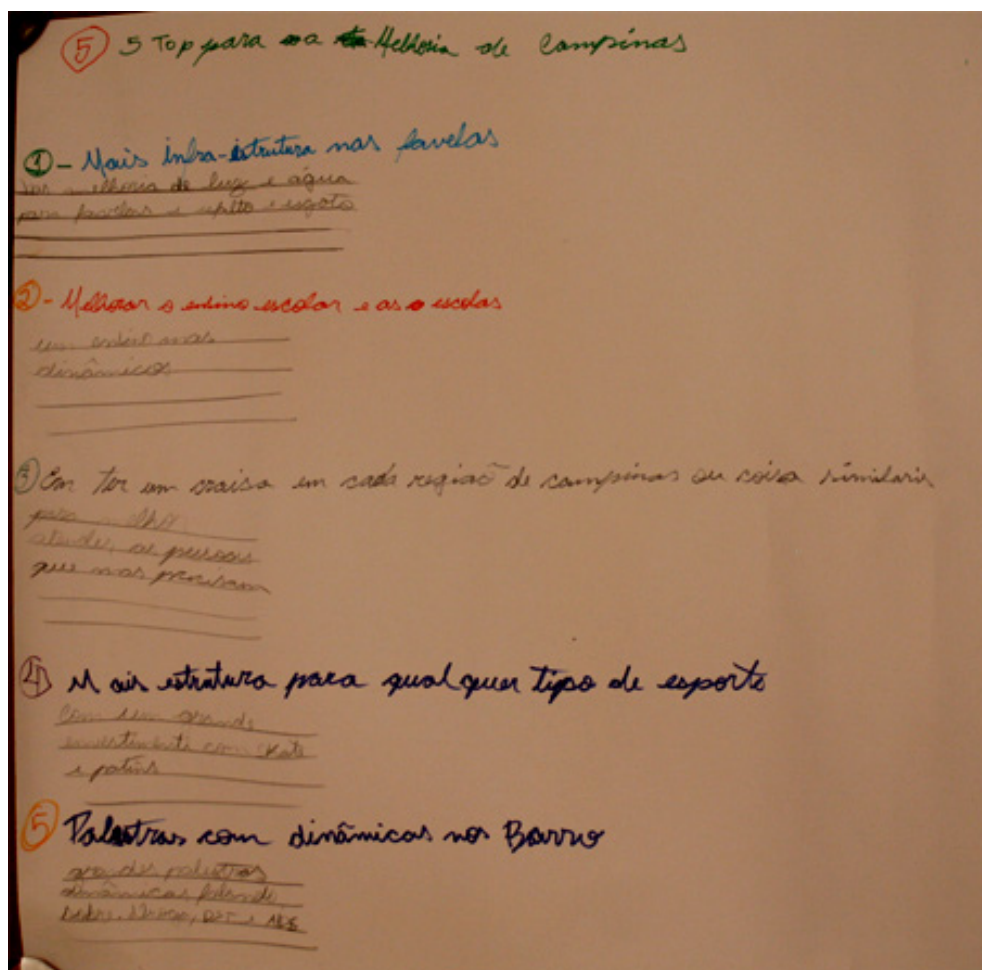 5 5 Top para a Melhoria de Campinas
1 - Mais infra-estrutura nas favelas
melhoria de luz e água
para favelas e esgoto
2 - Melhorar o ensino escolar e as escolas
um mas
dinâmicos
3 Em ter um em cada região de campinas ou coisa similaris
atender as pessoas
que mas precisam
4 Mais estrutura para qualquer tipo de esporte
Com um grande
investimento com skate
e patins
5 Palestras com dinâmicas nos Barrio
grandes palestras
dinâmicas falando
sobre, Drogas, DST e AIDS